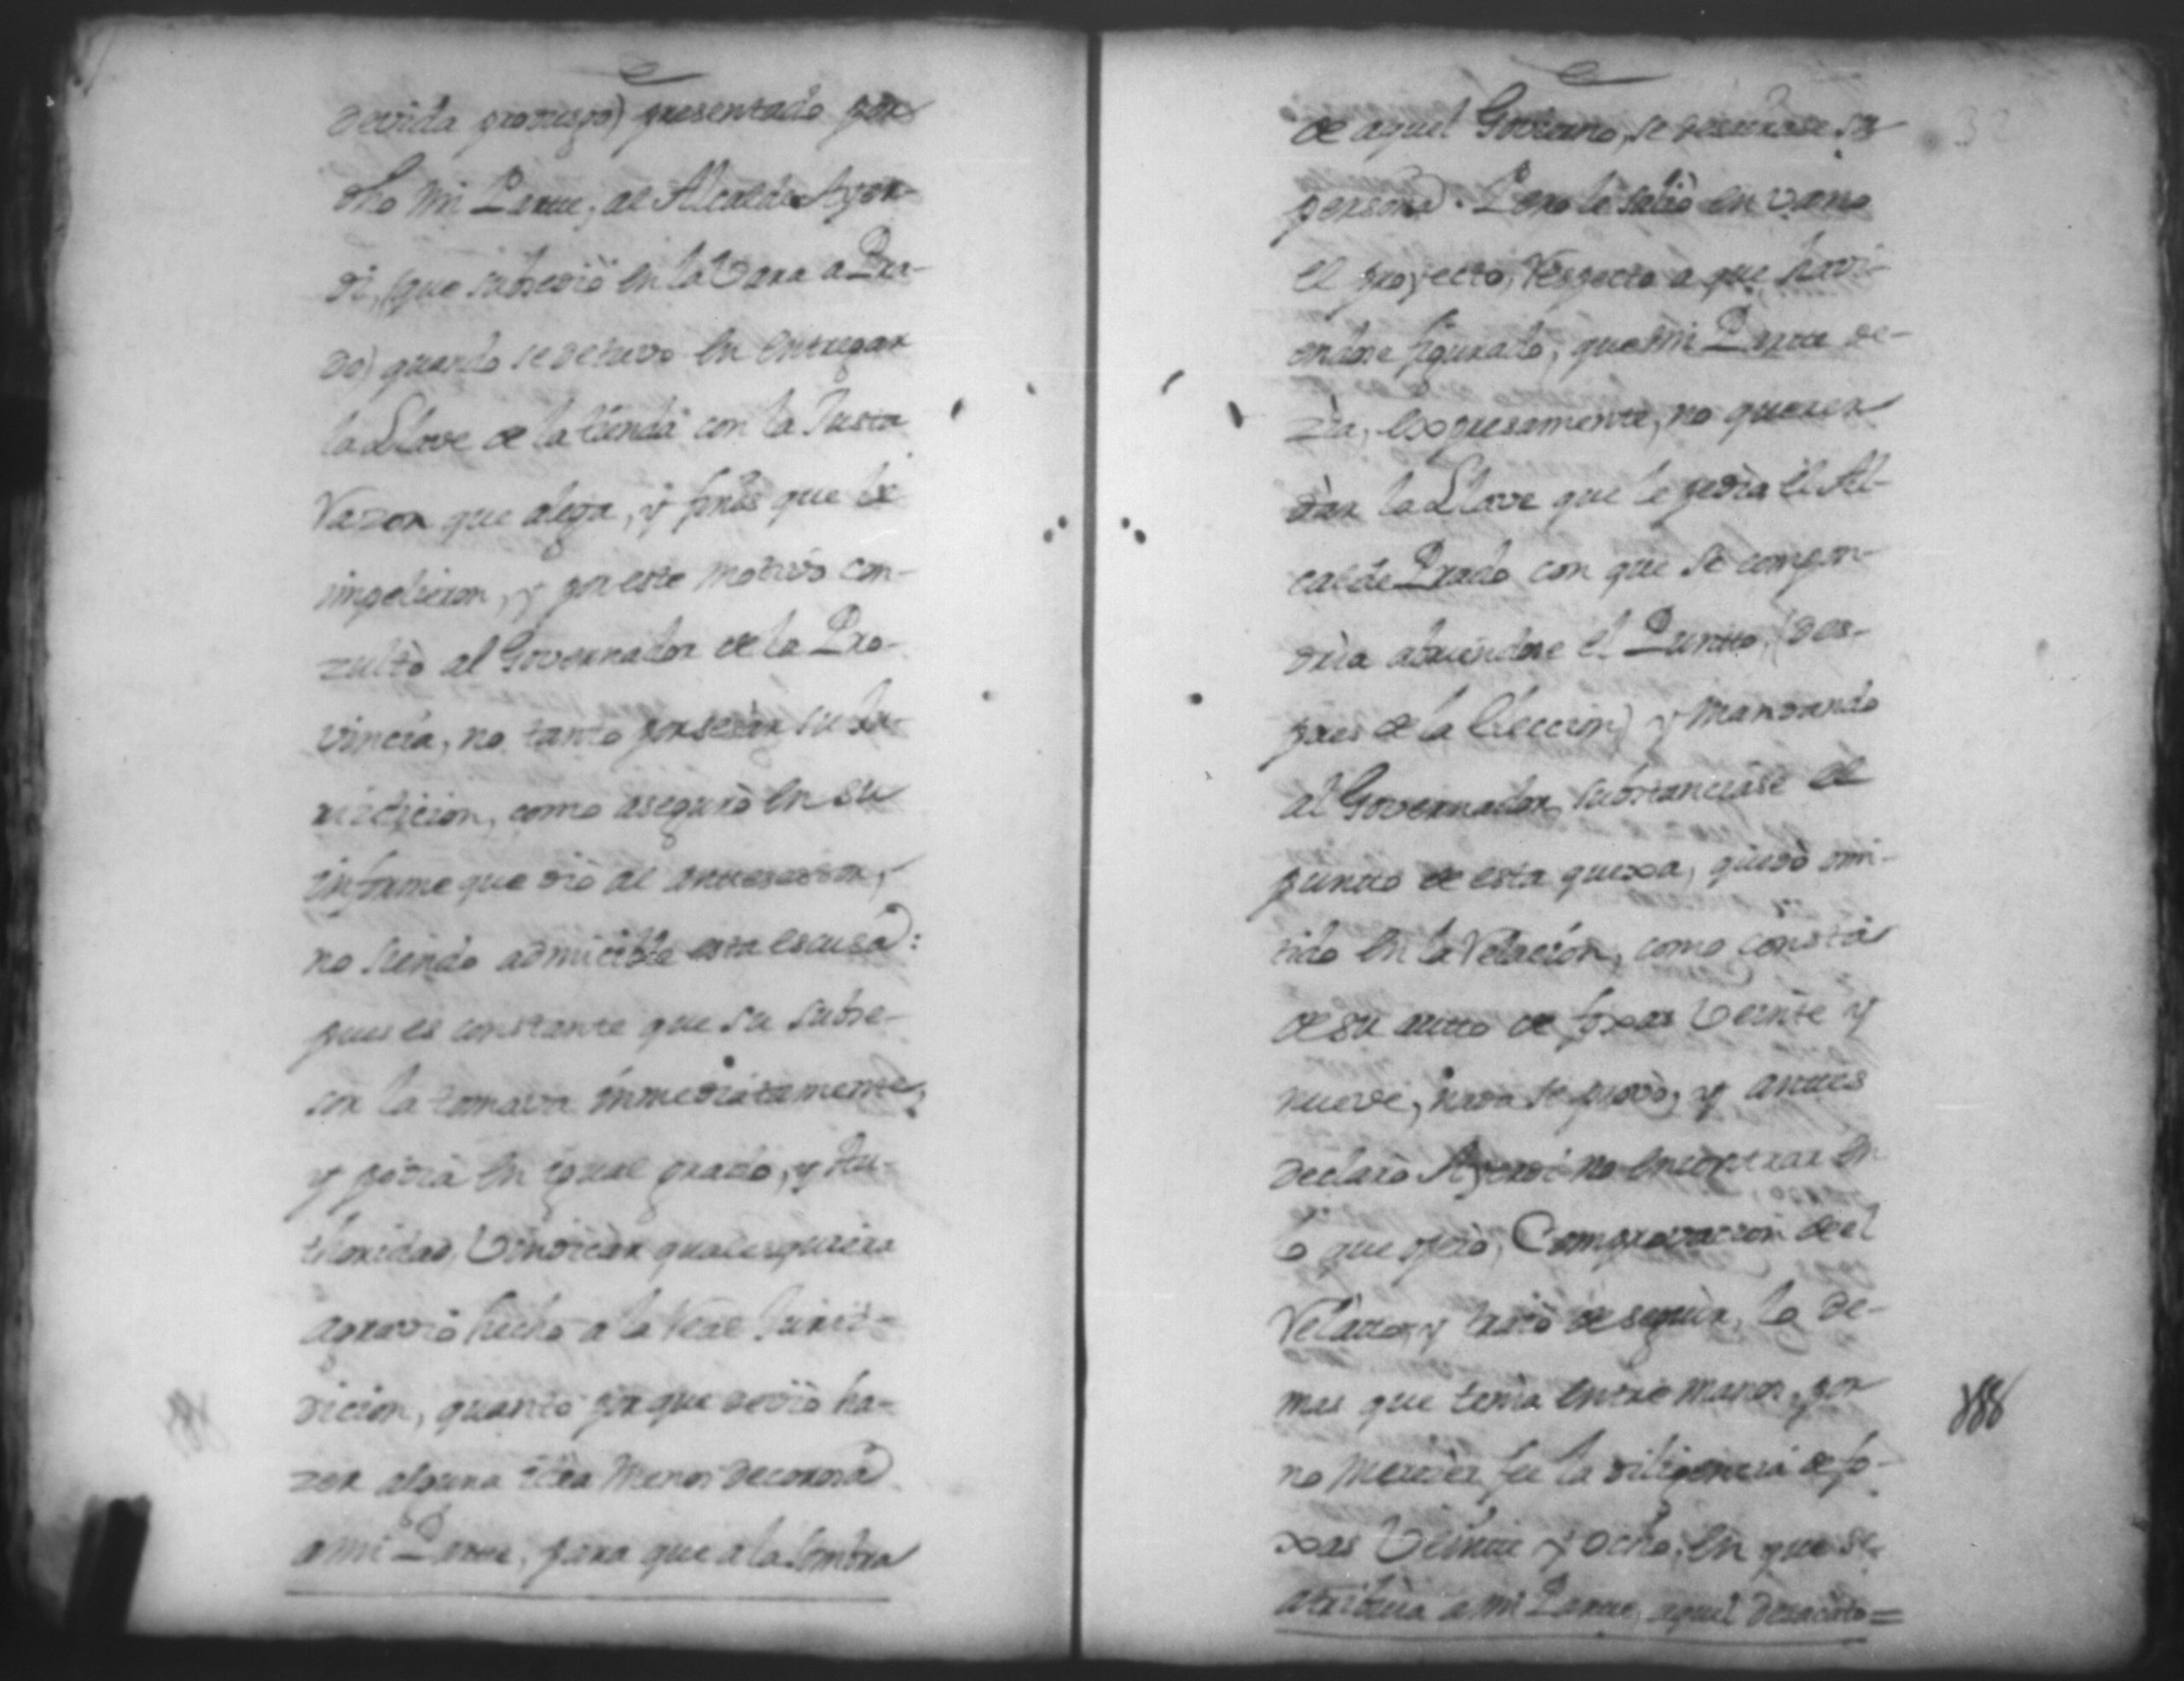 devida protesta) presentado por
dho mi Parte, al Alcalde Ayer-
di, (que subcedió en la Vara a Pra-
do) quando se detuvo en entregar
la Llave de la tienda con la Justa
Razon que alega, y fines que le
impelieron, y por este motivo con-
zultò al Governador de la Pro-
vincia, no tanto por sedèr su Ju-
ridicion, como asegurò en su
informe que diò al antesesor,
no siendo admicible esta escusa:
pues es constante que su subce-
sor la tomava inmediatamente,
y podia en igual grado, y Au-
thoridad, Vindicàr qualesquiera
agravio hecho a la Real Juris-
dicion, quanto por que deviò ha-
zer alguna idea menos decorosa
a mi Parte, para que a la sombra
de aquel Govierno, se su
persona. Pero le saliò en vano
el proyecto, respecto a que, havi-
endose figurado, que mi Parte de-
zia, expresamente, no querer
dàr la Llave que le pedia el Al-
calde Prado con que se compon-
dria abriendose el Puntto, (des-
pues de la Eleccion) y mandando
al Governador, substanciase el
puntto de esta quexa, quedò omi-
tido en la Relacion, como consta
de su autto de foxas Veinte y
nueve, nada se provò, y anttes
declarò Ayerdi no encontrar en
lo que opero, Comprovacion de el
Relatto, y tratò de seguir, lo de-
mas que tenia entre manos, por
no merecer fee la diligencia de fo-
xas Veinte y ocho, en que se
atribuìa a mi Parte, aquel desacato=
188